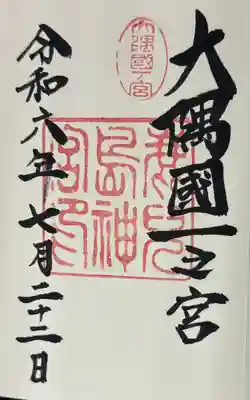 大隅國一之宮
大隅國一ノ宮
鹿兒
島神
宮印
令和六年七月二十二日